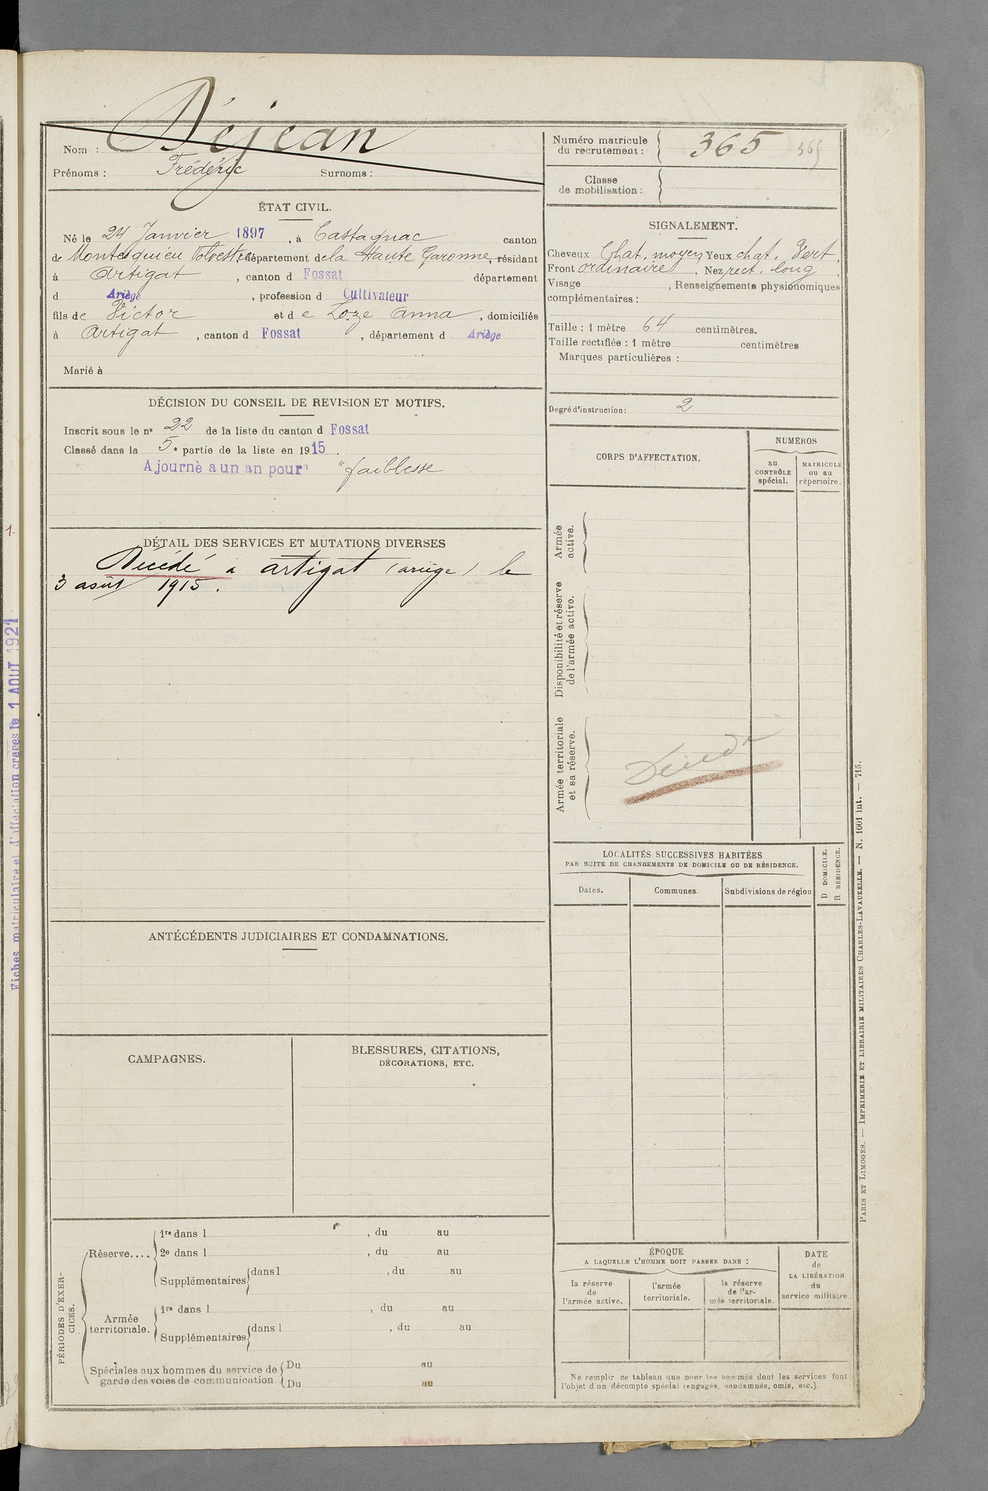 Nom : Déjean
Prénoms : Frédéric Surnoms :
Numéro matricule
du recrutement : 365 365
Classe
de mobilisation :
ÉTAT CIVIL.
Né le 24 Janvier 1897, à Castagnac canton
de Montesquieu Volvestre département de la Haute Garonne, résidant
à Artigat, canton d Fossat département
d Ariège, profession d Cultivateur
fils de Victor et de Loze Anna, domiciliés
à Artigat, canton d Fossat, département d Ariège
Marié à
SIGNALEMENT.
Cheveux Chat. moyen Yeux chat. Vert,
Front ordinaire, Nez rect. long
Visage , Renseignements physionomiques
complémentaires :
Taille : 1 mètre 64 centimètres.
Taille rectifiée : 1 mètre centimètres
Marques particulières :
Degré d'instruction : 2
DÉCISION DU CONSEIL DE REVISION ET MOTIFS.
Inscrit sous le n° 22 de la liste du canton d Fossat
Classé dans la 5e partie de la liste en 1915.
Ajourné a un an pour "faiblesse
DÉTAIL DES SERVICES ET MUTATIONS DIVERSES
Décédé à Artigat (ariège) le
3 août 1915.
CORPS D'AFFECTATION.
NUMÉROS
au
CONTRÔLE
spécial.
MATRICULE
ou au
répertoire.
Armée
active.
Disponibilité et réserve
de l'armée active.
Armée territoriale
et sa réserve.
Décédé
LOCALITÉS SUCCESSIVES HABITÉES
PAR SUITE DE CHANGEMENTS DE DOMICILE OU DE RÉSIDENCE.
Dates. Communes. Subdivisions de région
D DOMICILE.
R RÉSIDENCE.
ANTÉCÉDENTS JUDICIAIRES ET CONDAMNATIONS.
CAMPAGNES.
BLESSURES, CITATIONS,
DÉCORATIONS, ETC.
PÉRIODES D'EXER-
CICES.
Réserve....
1re dans l , du au
2e dans l , du au
Supplémentaires dans l , du au
Armée
territoriale.
1re dans l , du au
Supplémentaires dans l , du au
Spéciales aux hommes du service de
garde des voies de communication
Du au
Du au
ÉPOQUE
A LAQUELLE L'HOMME DOIT PASSER DANS :
la réserve
de
l'armée active.
l'armée
territoriale.
la réserve
de l'ar-
mée territoriale.
DATE
de
LA LIBÉRATION
du
service militaire
Ne remplir ce tableau que pour les hommes dont les services font
l'objet d'un décompte spécial (engagés, condamnés, omis, etc.).
PARIS ET LIMOGES. — IMPRIMERIE ET LIBRAIRIE MILITAIRES CHARLES-LAVAUZELLE. — N. 1001 int. — 715.
1.
Fiches matriculaire et d'affectation créées le 1 AOUT 1921